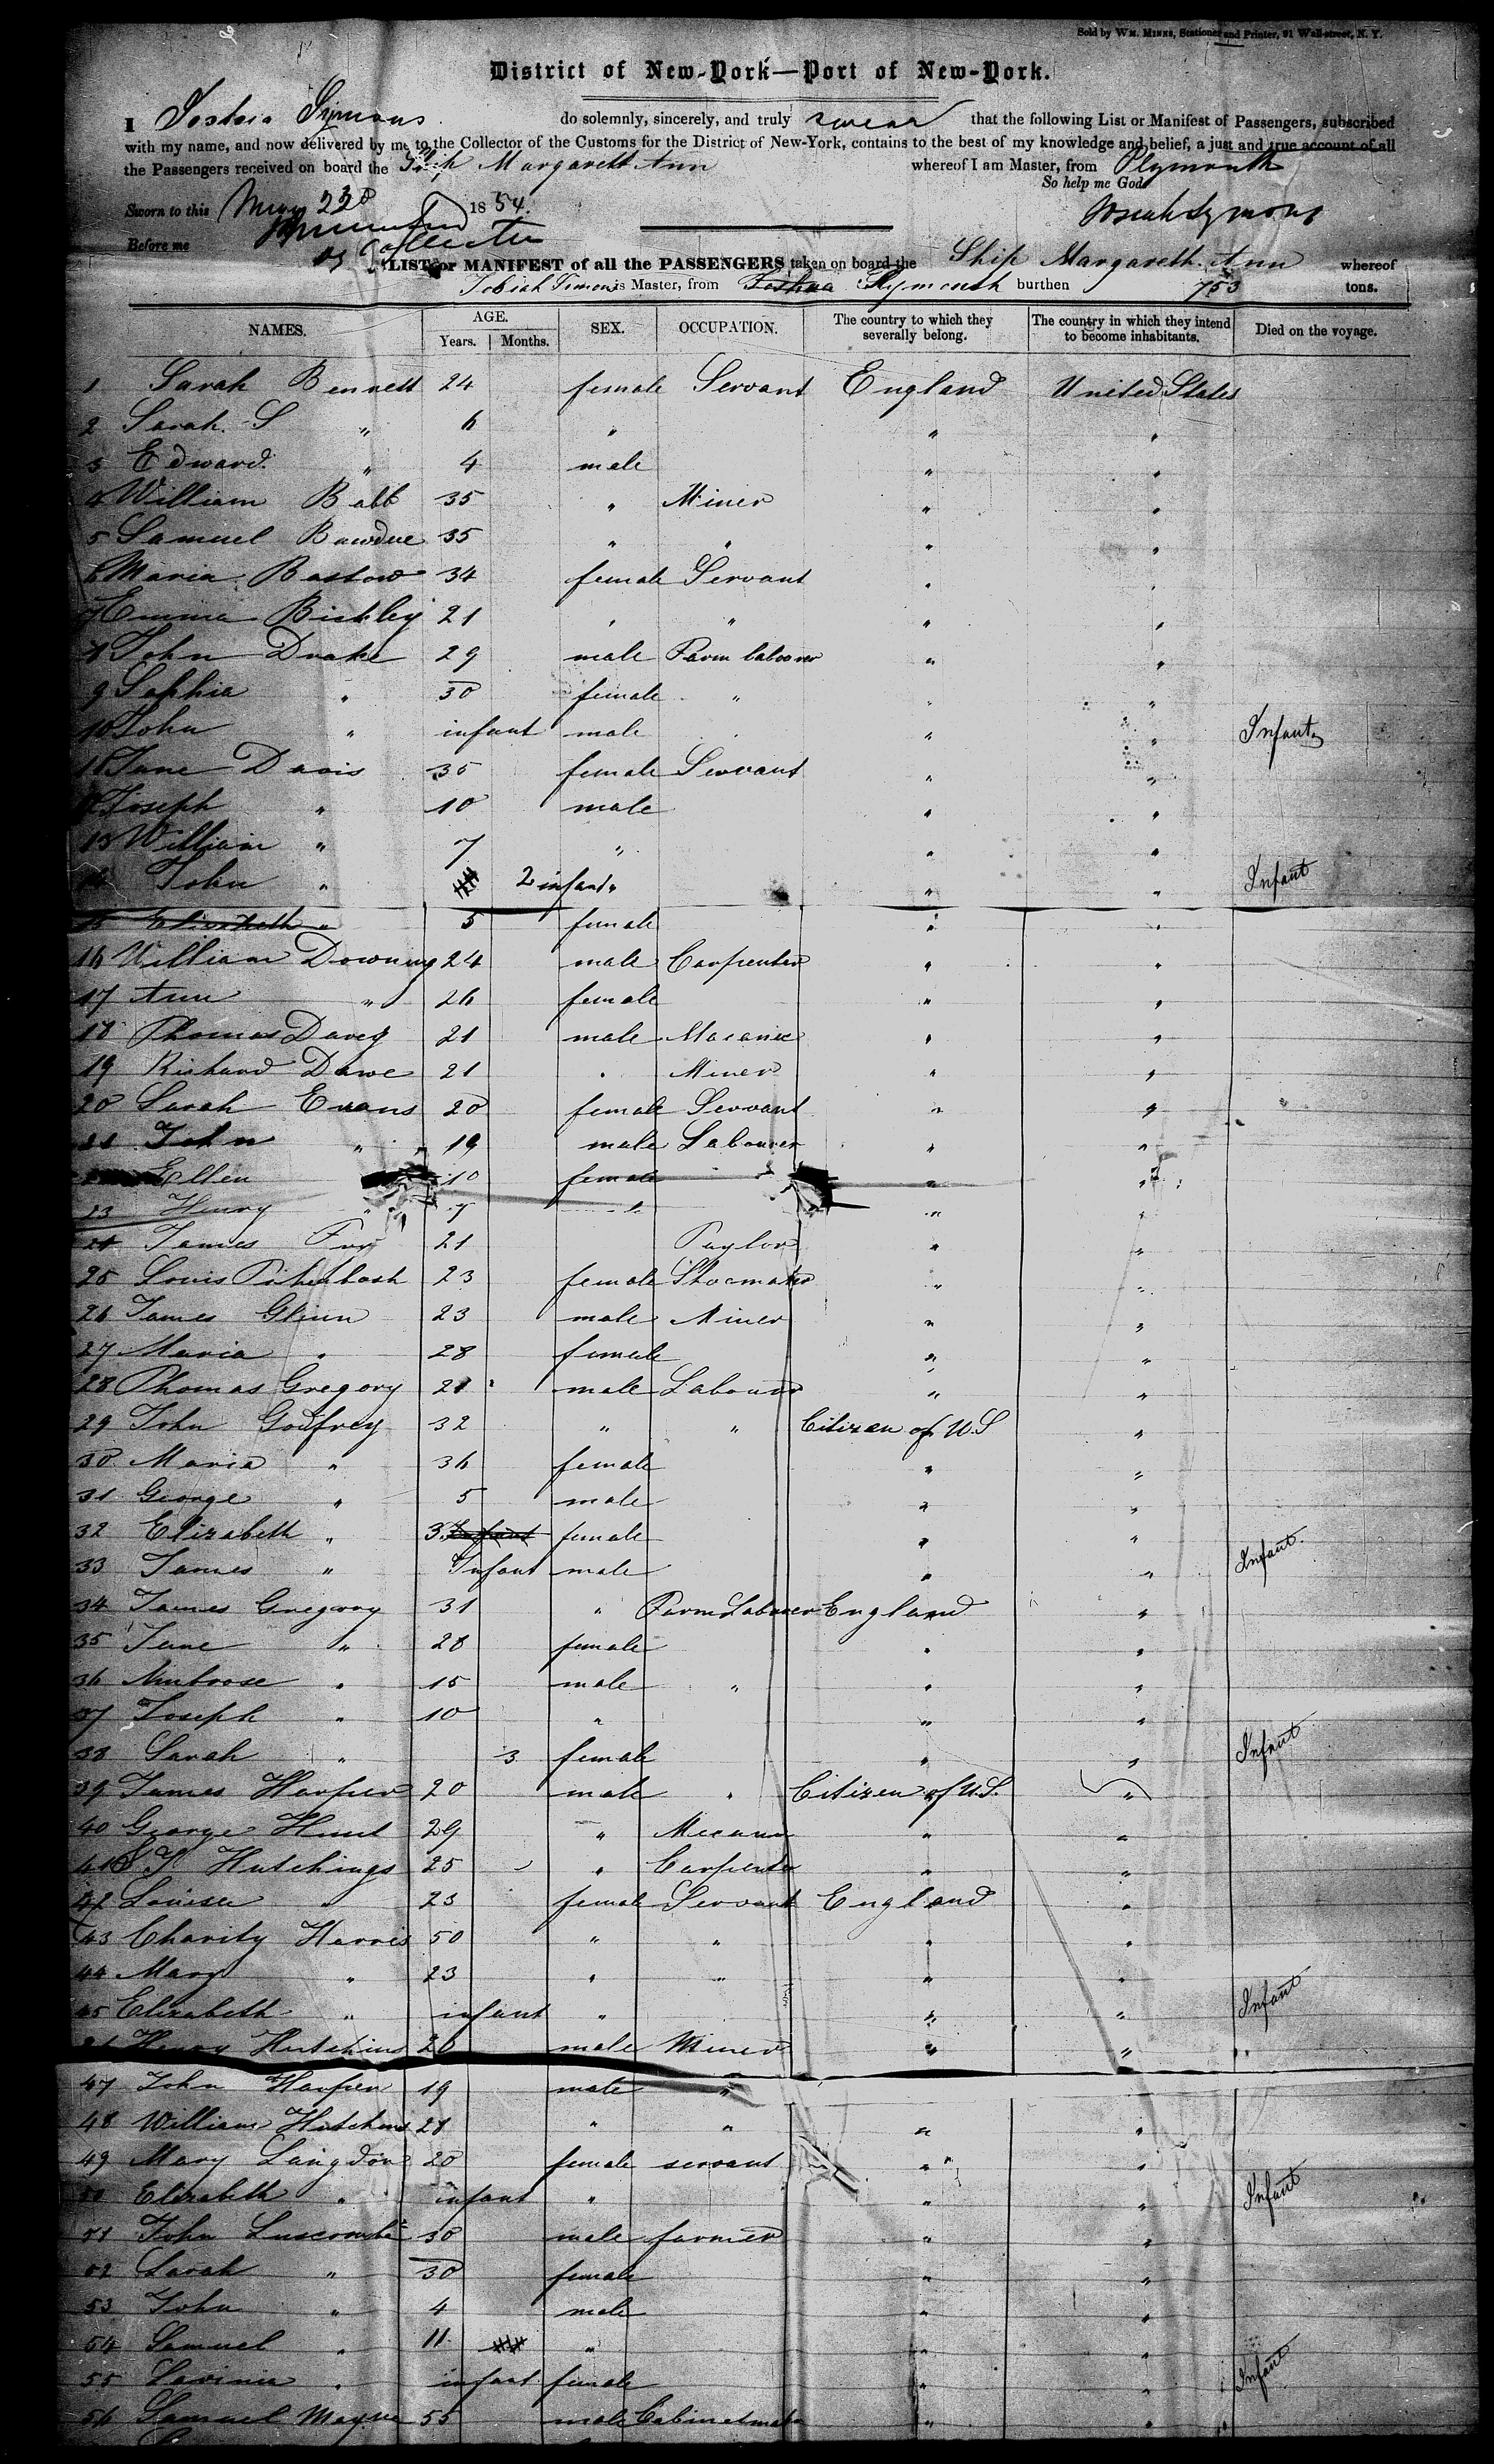 Sold by WM. MINNS, Stationer and Printer, 91 Wall-street, N. Y.
District of New-York—Port of New-York.
I Symons do solemnly, sincerely, and truly swear that the following List or Manifest of Passengers, subscribed
with my name, and now delivered by me to the Collector of the Customs for the District of New-York, contains to the best of my knowledge and belief, a just and true account of all
the Passengers received on board the Ship Margareth Ann whereof I am Master, from Plymouth
So help me God
Sworn to this May 22d 1854.
Before me Collector
LIST or MANIFEST of all the PASSENGERS taken on board the Ship Margareth. Ann whereof
is Master, from Plymouth burthen 753 tons.
NAMES. AGE. SEX. OCCUPATION. The country to which they severally belong. The country in which they intend to become inhabitants. Died on the voyage.
Years. Months.
1 Sarah Bennett 24 female Servant England United States
2 Sarah. S " 6 " " "
3 Edward. " 4 male " "
4 William Babb 35 " Miner " "
5 Samuel Bawdue 35 " " " "
6 Maria Bastow 34 female Servant " "
7 Emma Bickley 21 " " " "
8 John Drake 29 male Farm labourer " "
9 Sophia " 30 female " " "
10 John " infant male " " Infant
11 Jane Davis 35 female Servant " "
12 Joseph " 10 male " "
13 William " 7 " " "
14 John " 2 infant " " " Infant
15 Elizabeth " 5 female " "
16 William Downing 24 male Carpenter " "
17 Ann " 26 female " "
18 Thomas Davey 21 male " "
19 Richard Dawe 21 " Miner " "
20 Sarah Evans 20 female Servant " "
21 John " 19 male Labourer " "
Ellen 10 female " "
23 Henry " 7 " "
24 James Fry 21 Taylor " "
25 Louis 23 female Shoemaker " "
26 James Glinn 23 male Miner " "
27 Maria " 28 female " "
28 Thomas Gregory 21 male Labourer " "
29 John Godfrey 32 " " Citizen of U.S "
30 Maria " 36 female " "
31 George " 5 male " "
32 Elizabeth " 3 Infant female " "
33 James " Infant male " " Infant.
34 James Gregory 31 " Farm Labourer England "
35 Jane " 28 female " "
36 Ambrose " 15 male " " "
37 Joseph " 10 " " "
38 Sarah " 3 female " " Infant
39 James Harper 20 male " Citizen of U.S. "
40 George Hunt 29 " " "
41 Hutchings 25 " Carpenter " "
42 Louisa " 23 female Servant England "
43 Charity Harris 50 " " " "
44 Mary " 23 " " " "
45 Elizabeth " infant " " " Infant
Henry Hutchins 20 male Miner " "
47 John Harper 19 male "
48 William Hutchins 28 " " " "
49 Mary Langdon 20 female servant " "
50 Elizabeth " infant " " " Infant
51 John Luscombe 30 male farmer " "
52 Sarah " 30 female " "
53 John " 4 male " "
54 Samuel " 11 " " "
55 Lavinia " infant female " " Infant
56 Samuel Mayne 55 male Cabinetmaker " "